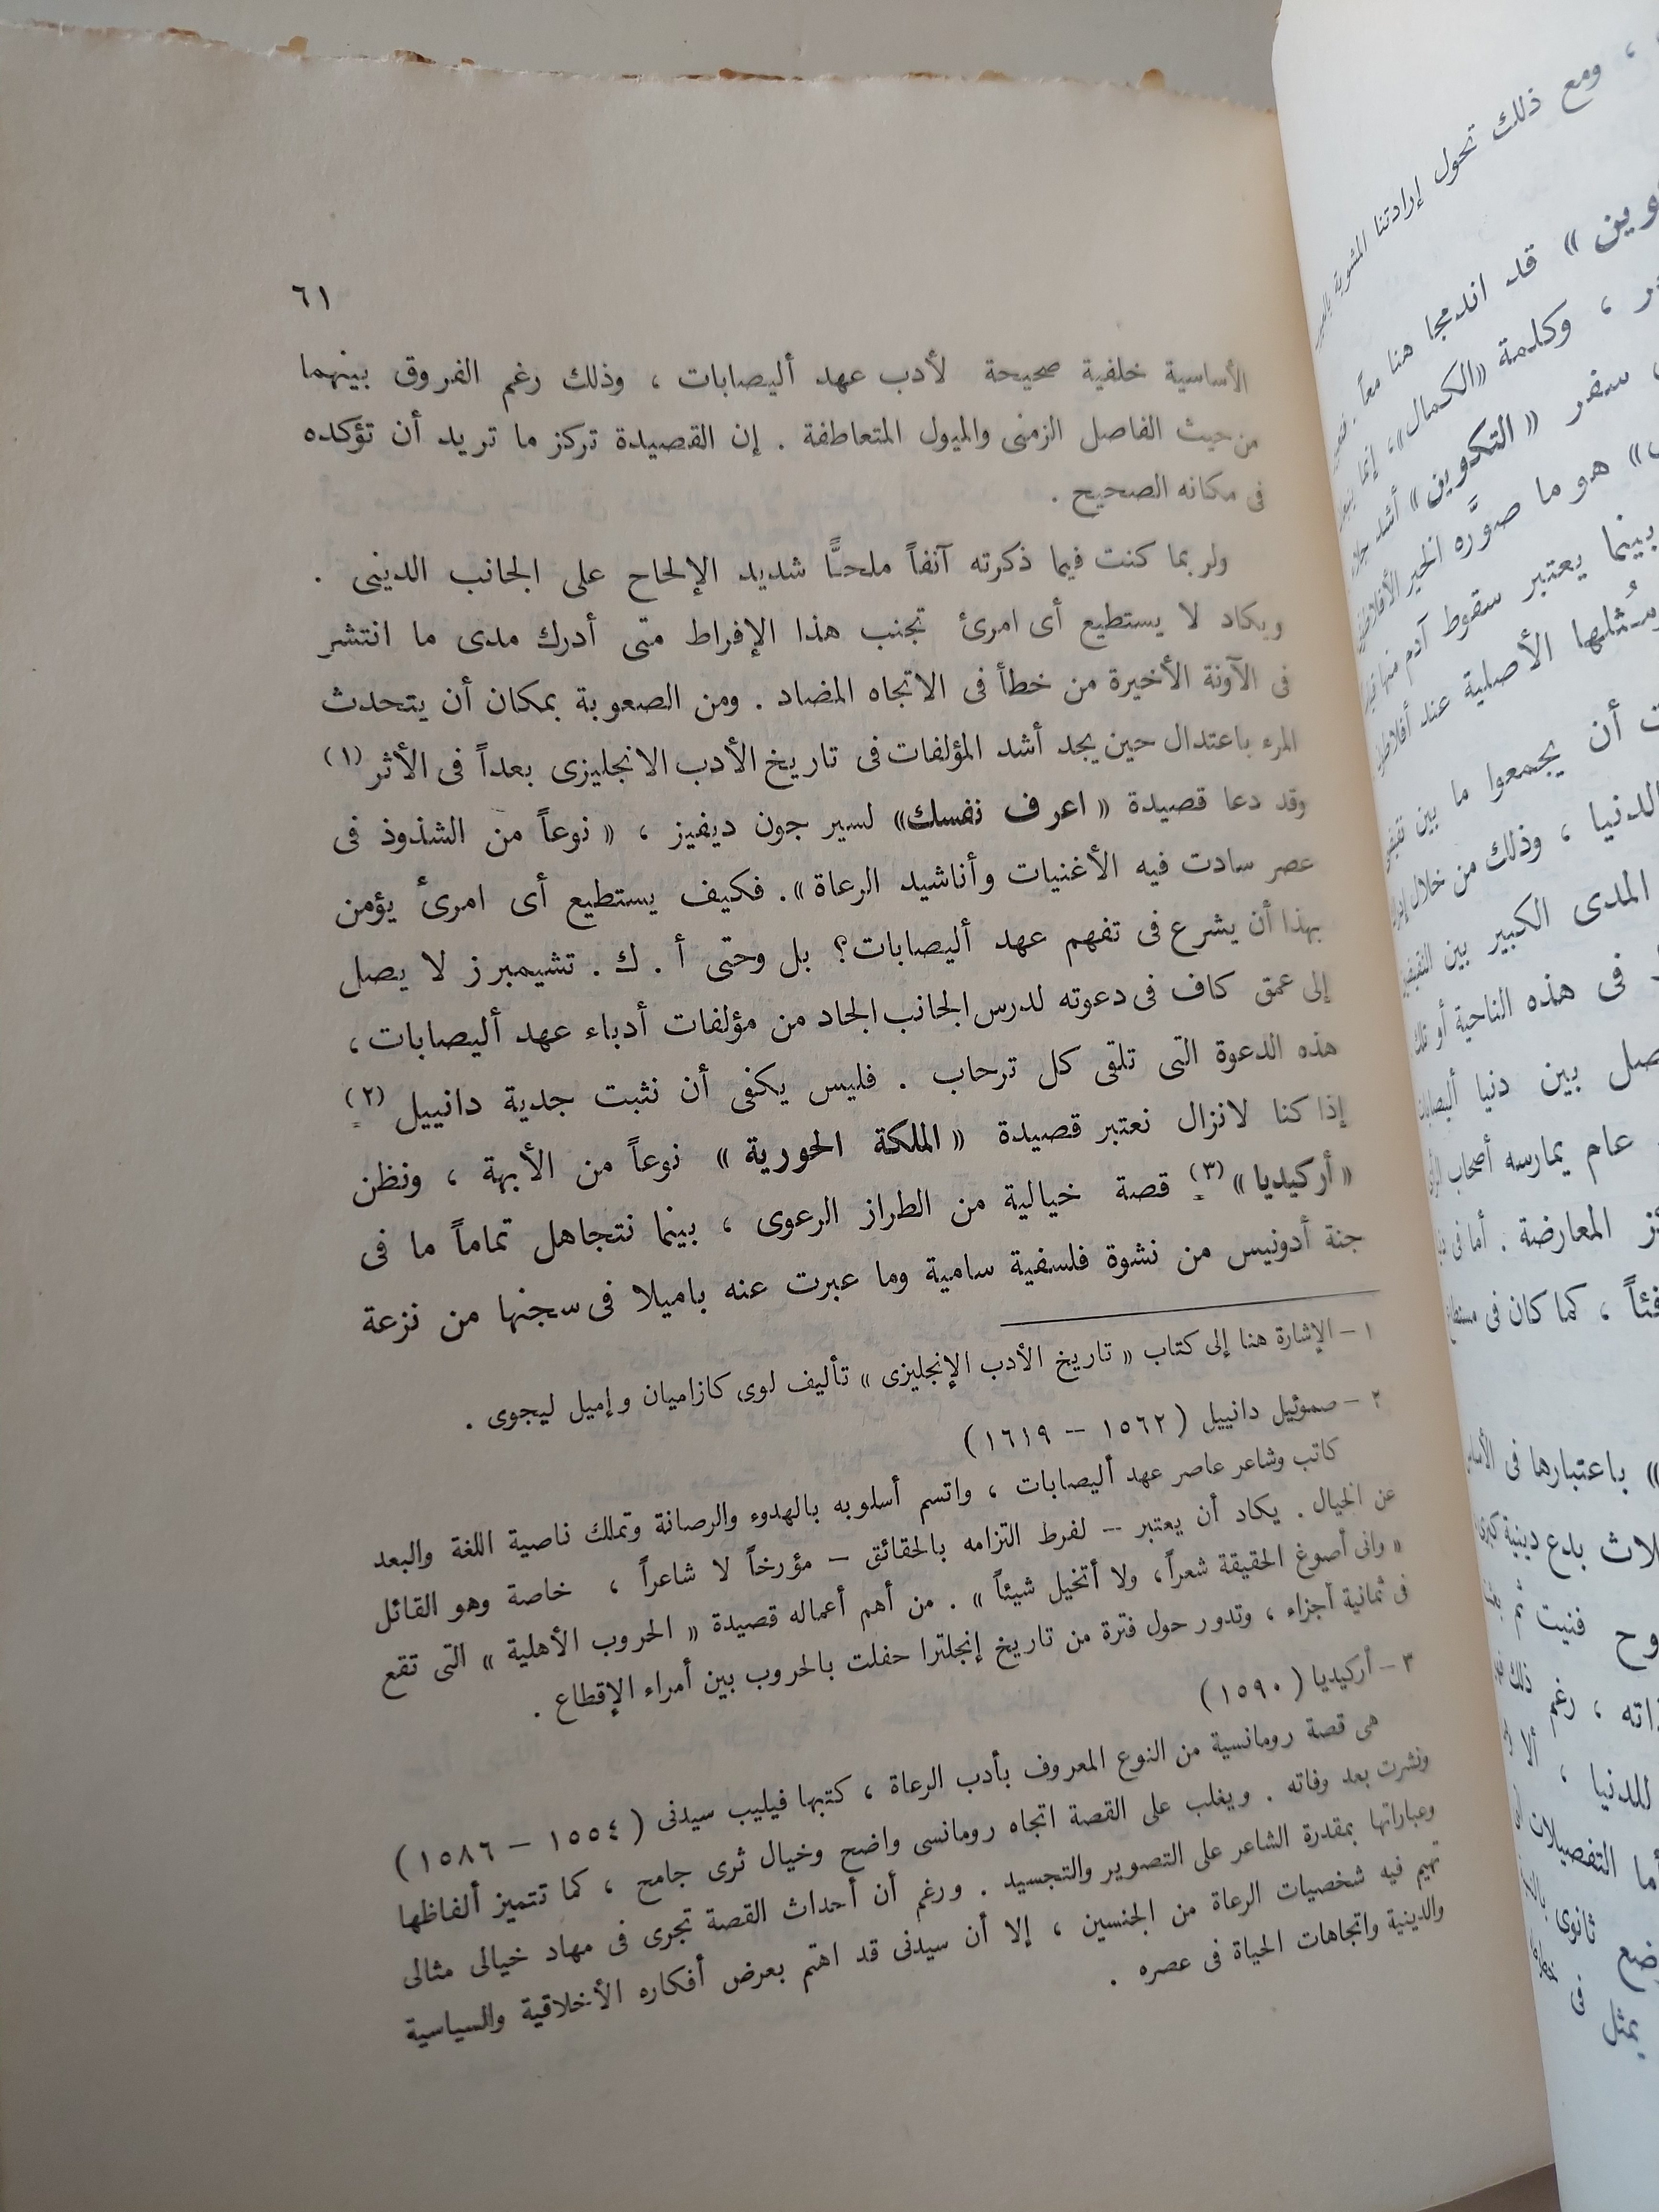 ٦١
الأساسية خلفية صحيحة لأدب عهد أليصابات ، وذلك رغم الفروق بينهما
من حيث الفاصل الزمنى والميول المتعاطفة . إن القصيدة تركز ما تريد أن تؤكده
فى مكانه الصحيح .
ولربما كنت فيما ذكرته آنفاً ملحًّا شديد الإلحاح على الجانب الدينى .
ويكاد لا يستطيع أى امرئ تجنب هذا الإفراط متى أدرك مدى ما انتشر
فى الآونة الأخيرة من خطأ فى الاتجاه المضاد . ومن الصعوبة بمكان أن يتحدث
المرء باعتدال حين يجد أشد المؤلفات فى تاريخ الأدب الانجليزى بعداً فى الأثر (١)
وقد دعا قصيدة « اعرف نفسك» لسير جون ديفيز ، « نوعاً من الشذوذ فى
عصر سادت فيه الأغنيات وأناشيد الرعاة» . فكيف يستطيع أى امرئ يؤمن
بهذا أن يشرع فى تفهم عهد أليصابات؟ بل وحتى أ . ك . تشيمبرز لا يصل
إلى عمق كاف فى دعوته لدرس الجانب الجاد من مؤلفات أدباء عهد أليصابات ،
هذه الدعوة التى تلقى كل ترحاب . فليس يكفى أن نثبت جدية دانييل (٢)
إذا كنا لانزال نعتبر قصيدة « الملكة الحورية » نوعاً من الأبهة ، ونظن
« أركيديا » (٣) قصة خيالية من الطراز الرعوى ، بينما نتجاهل تماماً ما فى
جنة أدونيس من نشوة فلسفية سامية وما عبرت عنه باميلا فى سجنها من نزعة
١ – الإشارة هنا إلى كتاب « تاريخ الأدب الإنجليزى » تأليف لوى كازاميان وإميل ليجوى .
٢ – صموئيل دانييل ( ١٥٦٢ – ١٦١٩ )
كاتب وشاعر عاصر عهد أليصابات ، واتسم أسلوبه بالهدوء والرصانة وتملك ناصية اللغة والبعد
عن الخيال . يكاد أن يعتبر – لفرط التزامه بالحقائق – مؤرخاً لا شاعراً ، خاصة وهو القائل
« وانى أصوغ الحقيقة شعراً ، ولا أتخيل شيئاً » . من أهم أعماله قصيدة « الحروب الأهلية » التى تقع
فى ثمانية أجزاء ، وتدور حول فترة من تاريخ إنجلترا حفلت بالحروب بين أمراء الإقطاع .
٣ – أركيديا ( ١٥٩٠ )
هى قصة رومانسية من النوع المعروف بأدب الرعاة ، كتبها فيليب سيدنى ( ١٥٥٤ – ١٥٨٦ )
ونشرت بعد وفاته . ويغلب على القصة اتجاه رومانسى واضح وخيال ثرى جامح ، كما تتميز ألفاظها
وعباراتها بمقدرة الشاعر على التصوير والتجسيد . ورغم أن أحداث القصة تجرى فى مهاد خيالى مثالى
تهيم فيه شخصيات الرعاة من الجنسين ، إلا أن سيدنى قد اهتم بعرض أفكاره الأخلاقية والسياسية
والدينية واتجاهات الحياة فى عصره .
، ومع ذلك تحول إرادتنا المشوبة
» قد اندمجا هنا معاً .
، وكلمة «الكمال» ، إنما
سفر « التكوين » أشد
» هو ما صوَّره الخير
بينما يعتبر سقوط آدم
الأصلية عند
أن يجمعوا ما بين
الدنيا ، وذلك من خلال
المدى الكبير بين
فى هذه الناحية أو تلك
بين دنيا
عام يمارسه أصحاب
المعارضة . أما فى
، كما كان فى
» باعتبارها فى
بدع دينية
فنيت ثم
، رغم ذلك
للدنيا ، ألا
التفصيلات
ثانوى
فى
يمثل